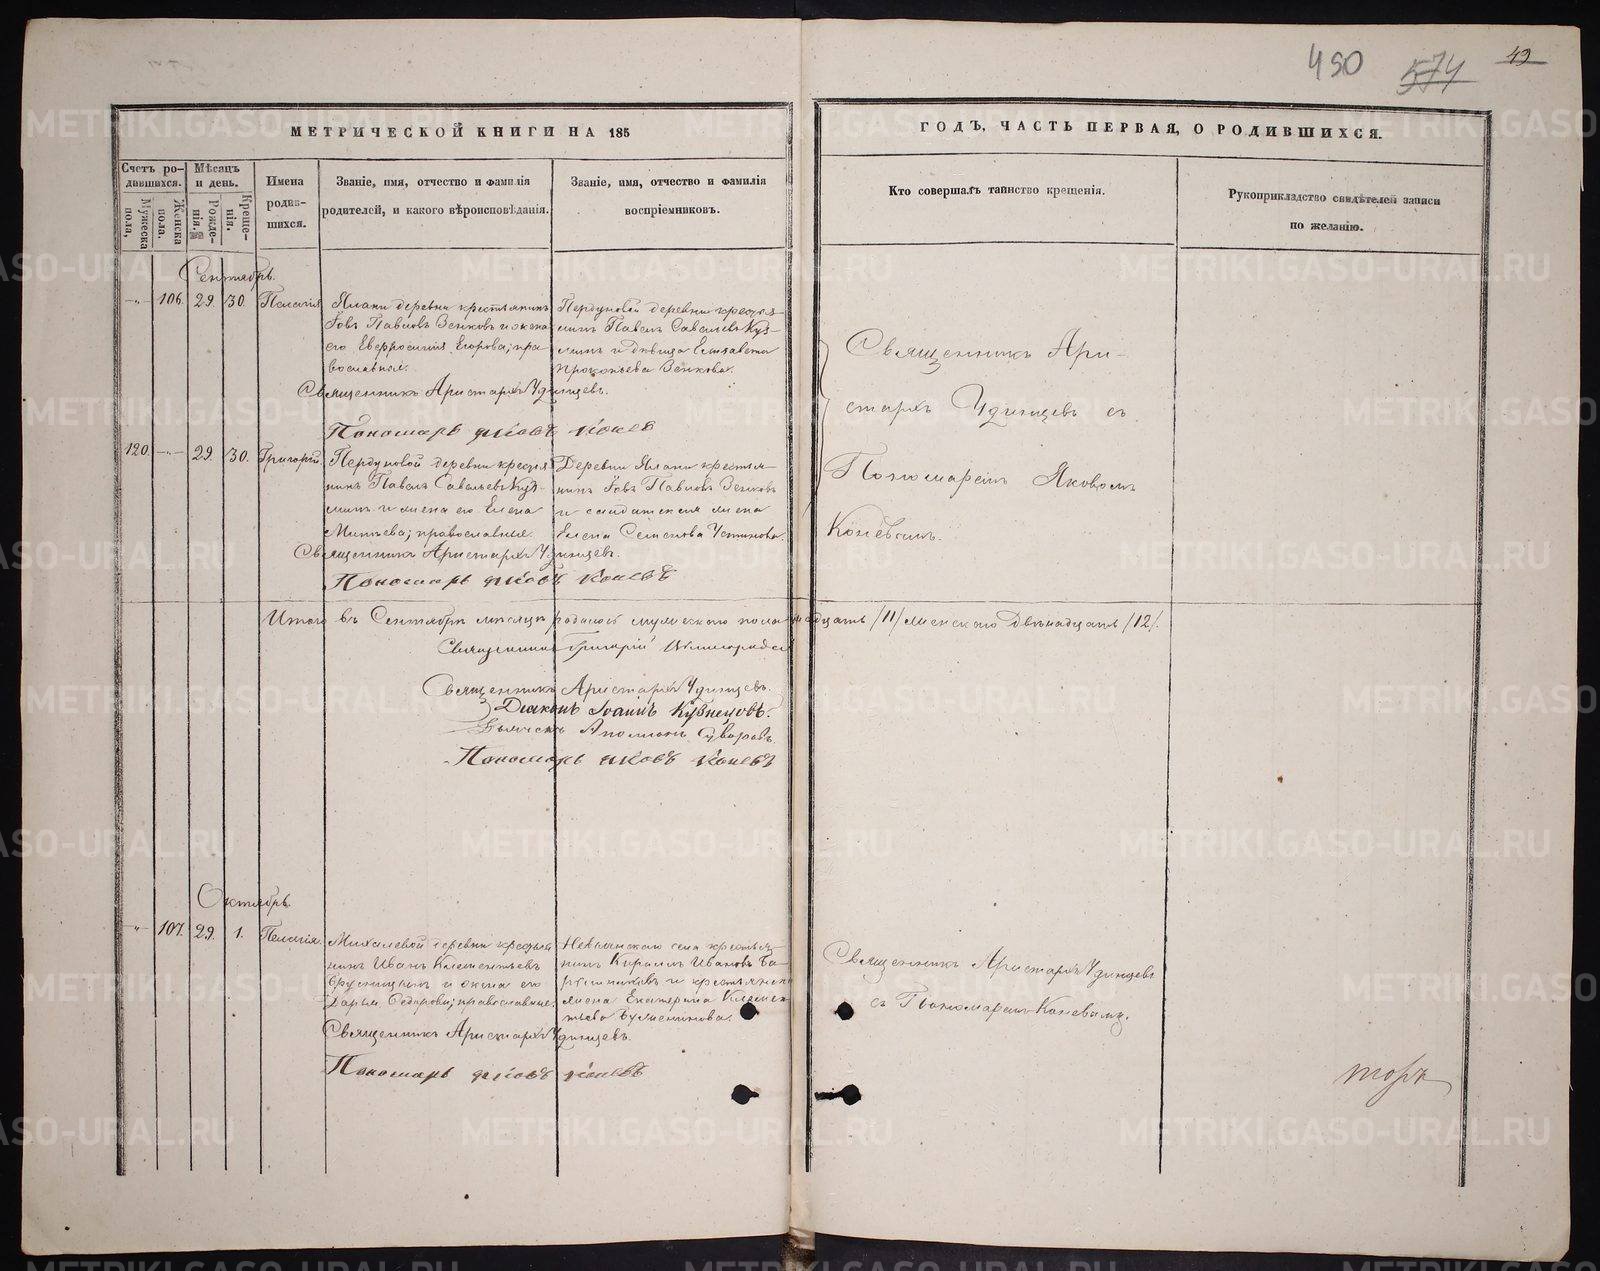 450 574 49
МЕТРИЧЕСКОЙ КНИГИ НА 185
ГОДЪ, ЧАСТЬ ПЕРВАЯ, О РОДИВШИХСЯ.
Счетъ ро-
дившихся.
Мужеска
пола,
Женска
пола.
Мѣсяцъ
и день.
Рожде-
нія.
Креще-
нія.
Имена
родив-
шихся.
Званіе, имя, отчество и фамилія
родителей, и какого вѣроисповѣданія.
Званіе, имя, отчество и фамилія
воспріемниковъ.
Кто совершалъ таинство крещенія.
Рукоприкладство свидѣтелей записи
по желанію.
Сентябрь.
-„- 106. 29. 30. Пелагія
Ялани деревни крестьянинъ
Іовъ Павловъ Зенковъ и жена
его Евфросинія Егорова; пра-
вославные.
Пердуновой деревни кресть-
янинъ Павелъ Савельевъ Куз-
минъ и дѣвица Елизавета
Прокопьева Зенкова.
Священникъ Аристархъ Удинцевъ.
Пономарь Яковъ Коневъ
Священникъ Ари-
стархъ Удинцевъ съ
Пономаремъ Яковомъ
Коневымъ.
120. -„- 29. 30. Григорій.
Пердуновой деревни крестья
нинъ Павелъ Савельевъ Куз-
минъ и жена его Елена
православные.
Деревни Ялани крестья-
нинъ Іовъ Павловъ Зенковъ
и солдатская жена
Елена Семенова Устинова.
Священникъ Аристархъ Удинцевъ.
Пономарь Яковъ Коневъ
Итого въ Сентябрѣ мѣсяцѣ родилось мужескаго пола /11/ женскаго двенадцать /12/.
Священникъ Григорій
Священникъ Аристархъ Удинцевъ.
Діаконъ Іоаннъ Кузнецовъ.
Дьячекъ
Пономарь Яковъ Коневъ
Октябрь.
-„- 107. 29. 1. Пелагія.
Михалевой деревни крестья
нинъ Иванъ Климентьевъ
и жена его
Дарья Федорова; православные.
Невьянскаго села крестья-
нинъ Кириллъ Ивановъ Ба-
и крестьянская
жена Екатерина Климен-
тьева
Священникъ Аристархъ Удинцевъ.
Пономарь Яковъ Коневъ
Священникъ Аристархъ Удинцевъ
съ Пономаремъ Коневымъ.
METRIKI.GASO-URAL.RU